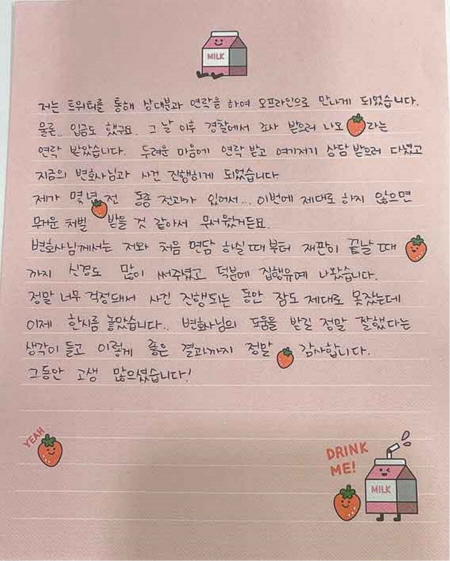 MILK
저는 트위터를 통해 상대분과 연락을 하여 오프라인으로 만나게 되었습니다.
물론.. 입금도 했구요. 그 날 이후 경찰에서 조사 받으러 나오라는
연락 받았습니다. 두려운 마음에 연락 받고 여기저기 상담 받으러 다녔고
지금의 변호사님과 사건 진행하게 되었습니다
제가 몇년 전 동종 전과가 있어서... 이번에 제대로 하지 않으면
무거운 처벌 받을 것 같아서 무서웠거든요.
변호사님께서는 저와 처음 면담 하실 때부터 재판이 끝날 때
까지 신경도 많이 써주셨고 덕분에 집행유예 나왔습니다.
정말 너무 걱정돼서 사건 진행되는 동안 잠도 제대로 못잤는데
이제 한시름 놓았습니다.. 변호사님의 도움을 받길 정말 잘했다는
생각이 들고 이렇게 좋은 결과까지 정말 감사합니다.
그동안 고생 많으셨습니다!
YEAH
DRINK
ME!
MILK